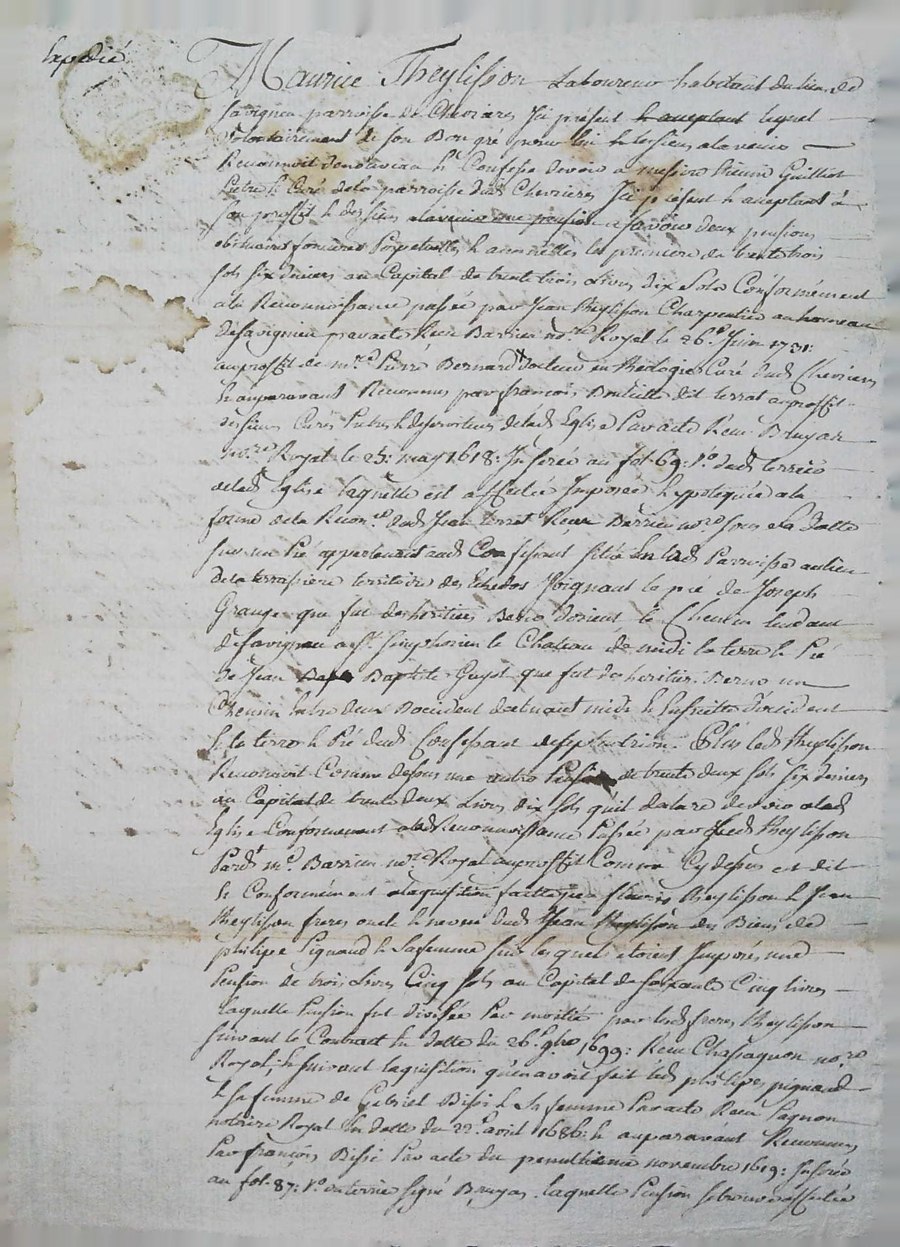 Expedié
Maurice Theylisson Laboureur habitant du lieu de
Savigneu parroisse de Chevrieres Ici présent & acceptant lequel
volontairement de son Bon gré pour lui & les siens alavenir
Reconnoit devoir a Guilliot
Pretre & Curé de la parroisse dud. Chevrieres Ici présent & acceptant à
son proffit & des siens alavenir une pension a savoir deux pensions
foncieres Perpetuelles & annuelles la premiere de trente trois
sols six deniers au Capital de trente trois Livres dix Sols Conformément
a la Reconnoissance passée par Jean Theylisson Charpentier au hameau
de Savigneu par acte Reçu Barrieu no.re Royal le 26.e Juin 1731:
au proffit de m.re Pierre Bernard docteur en theologie Curé dud. Chevrieres
& auparavant Reconnue par françois dit terrat au proffit
des sieurs Curés Pretres & desserviteurs de lad. Eglise Par acte Reçu Bruyas
no.re Royal le 23: may 1618: Inserée au fol. 69. v.o dud. terrier
de lad. Eglise laquelle est affectée Imposée & hypotequée a la
forme de la Recon.ce dud. Jean Reçue Barrieu no.re sous la datte
sur un Pré appartenant aud. Confessant situé en lad. Parroisse au lieu
de la terrassiere territoire des Joignant le pré de Joseph
Grange que fut des heritiers d'orient le Chemin tendant
de Savigneu a S.t Simphorien le Chateau de midi la terre & Pré
de Jean Baptiste Guyot que fut des heritiers un
Chemin entre deux
& la terre & Pré dud. Confessant de septentrion. Plus led. Theylisson
Reconnoit Comme dessus une autre Pension de trente deux sols six deniers
au Capital de trente deux Livres dix sols qu'il declare devoir a lad.
Eglise Conformement a lad. Reconnoissance Passée par led. Theylisson
Pard.t m.e Barrieu no.re Royal au proffit Comme Cy dessus est dit
& Conformément a l'aquisition faitte par Theylisson & Jean
Theylisson freres oncle & neveu dud. Jean Theylisson des Biens de
philipe Pignaud & sa femme sur lesquels etoient Imposés une
Pension de trois Livres Cinq sols au Capital de soixante Cinq livres
laquelle Pension fut divisée Par moitié par lesd. freres Theylisson
suivant le Contract En datte du 26.e 9bre 1699: Reçu Chasagnon no.re
Royal & suivant laquisition qu'en avoit fait led. philipe pignaud
& sa femme de Gabriel Bissi & sa femme Par acte Reçu
notaire Royal En datte du 22.e avril 1686: & auparavant Reconnue
Par françois Bissi Par acte du penultieme novembre 1619: Inserée
au fol. 87: v.o du terrier signé Bruyas. laquelle Pension se trouve affectée